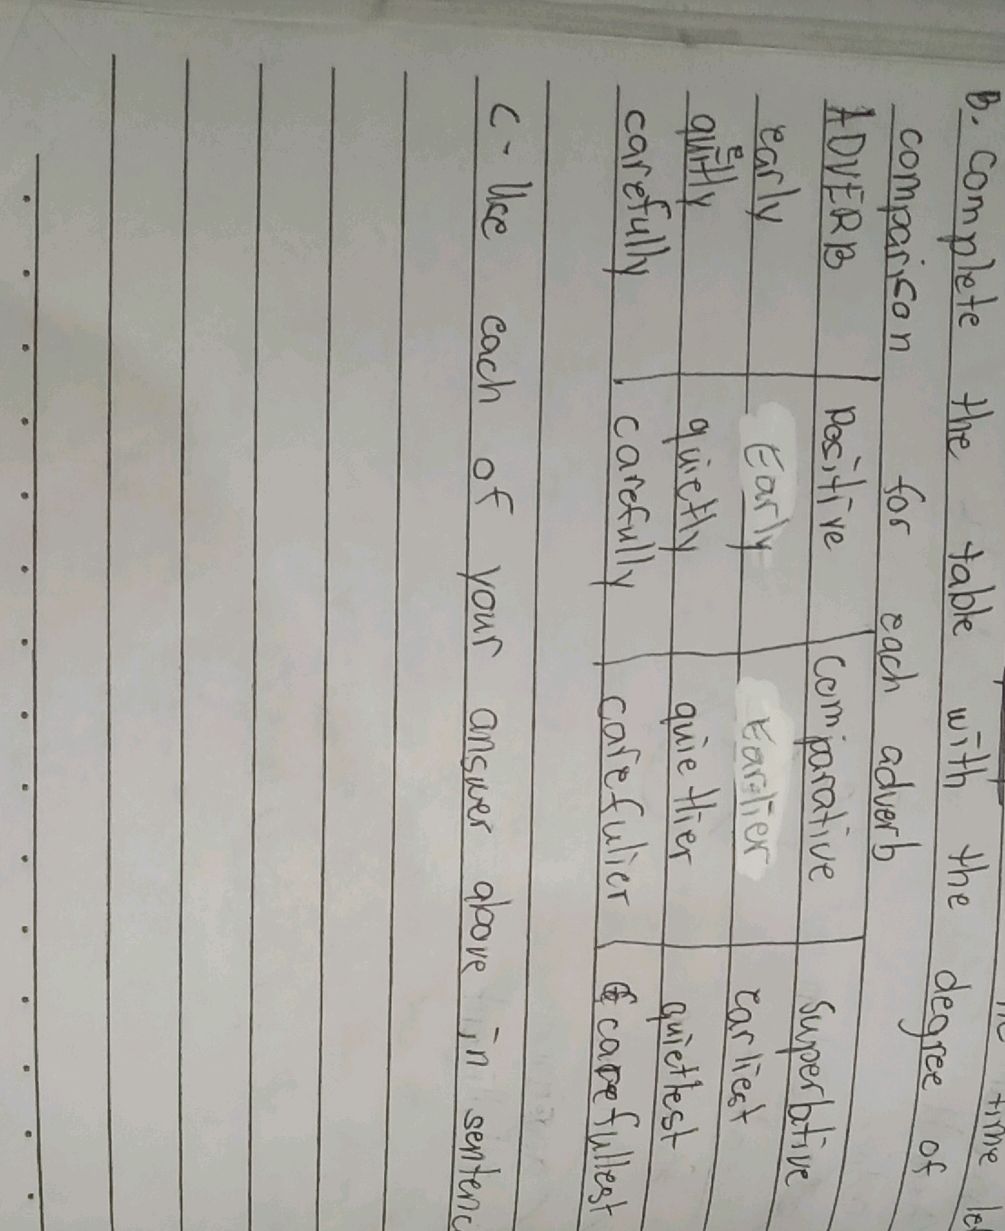 time le
B. Complete the table with the degree of
comparison for each adverb
ADVERB Positive Comparative Superbative
early Early Earlier earliest
quitly e quietly quiettier quiettest
carefully carefully carefulier carefullest
C- Use each of your answer above in sentenc